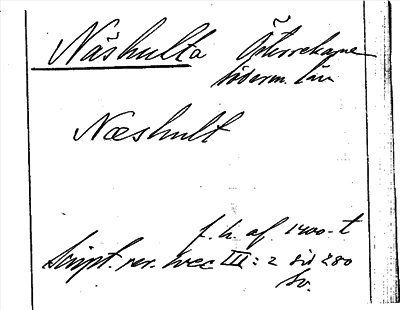 Näshulta Österrekarne
Söderm. län
Næshult
f. h. af 1400-t
Script. rer. svec III: 2 sid 280
Sv.